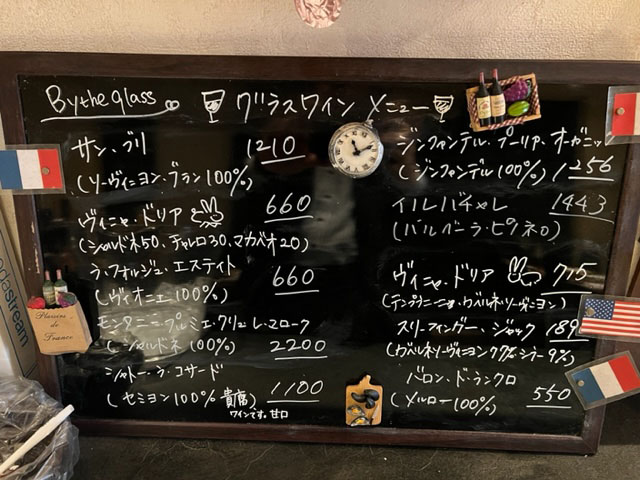 By the glass
グラスワイン メニュー
サン・ブリ 1210
(ソーヴィニヨン・ブラン 100%)
ヴィニャ・ドリア 660
(シャルドネ50、チャレロ30、マカベオ20)
ラ・フォルジュ・エステイト 660
(ヴィオニエ 100%)
モンタニー・プルミエ・クリュ レ・コローク
(シャルドネ 100%) 2200
シャトー・ラ・コサード
(セミヨン 100% 貴腐 1100
ワインです。甘口
ジンファンデル・プーリア・オーガニッ
(ジンファンデル100%) 1256
イル バチャレ 1443
(バルベーラ・ピノネロ)
ヴィニャ・ドリア 715
(テンプラニーニョ・カベルネ・ソーヴィニヨン)
スリーフィンガー・ジャック 189
(カベルネソーヴィニヨン 97% シラー 9%)
バロン・ド・ランクロ
(メルロー 100%) 550
Plaisirs
de
France
stream